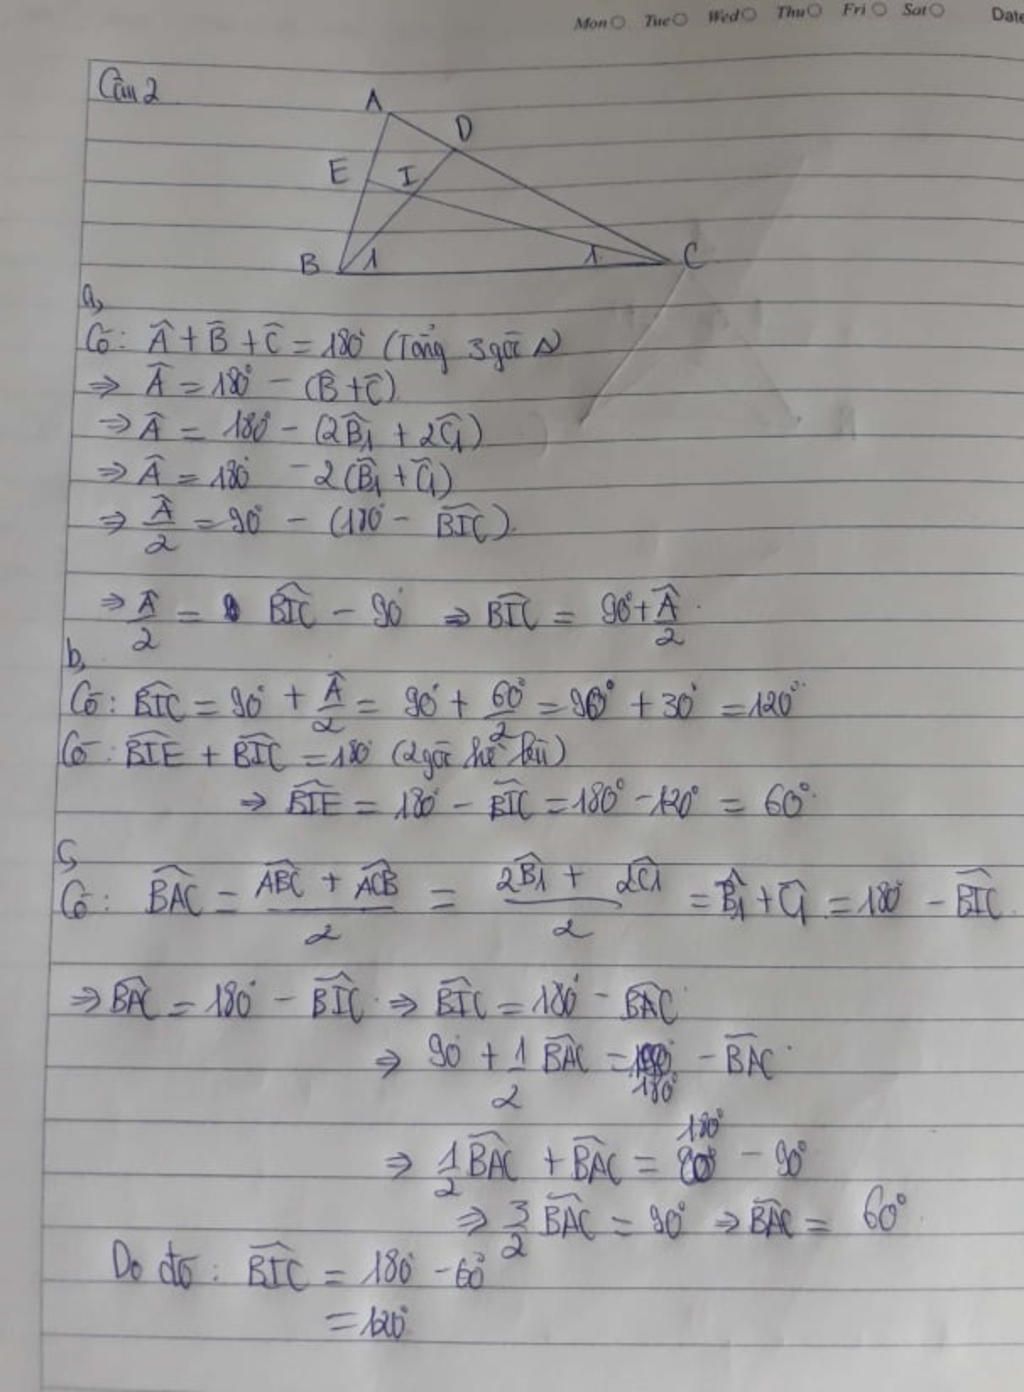 Mon Tue Wed Thu Fri Sat Date
Câu 2
A
D
E I
B 1 1 C
a,
Có: Â + B̂ + Ĉ = 180° (Tổng 3 góc Δ)
⇒ Â = 180° - (B̂ + Ĉ)
⇒ Â = 180° - (2B̂1 + 2Ĉ1)
⇒ Â = 180° - 2(B̂1 + Ĉ1)
⇒ Â/2 = 90° - (180° - BIC).
⇒ Â/2 = BIC - 90° ⇒ BIC = 90° + Â/2.
b,
Có: BIC = 90° + Â/2 = 90° + 60°/2 = 90° + 30° = 120°.
Có: BIE + BIC = 180° (2 góc kề bù)
⇒ BIE = 180° - BIC = 180° - 120° = 60°.
c,
Có: BAC = (ABC + ACB)/2 = (2B̂1 + 2Ĉ1)/2 = B̂1 + Ĉ1 = 180° - BIC.
⇒ BAC = 180° - BIC. ⇒ BIC = 180° - BAC.
⇒ 90° + 1/2 BAC = 180° - BAC.
⇒ 1/2 BAC + BAC = 180° - 90°
⇒ 3/2 BAC = 90° ⇒ BAC = 60°.
Do đó: BIC = 180° - 60°
= 120°